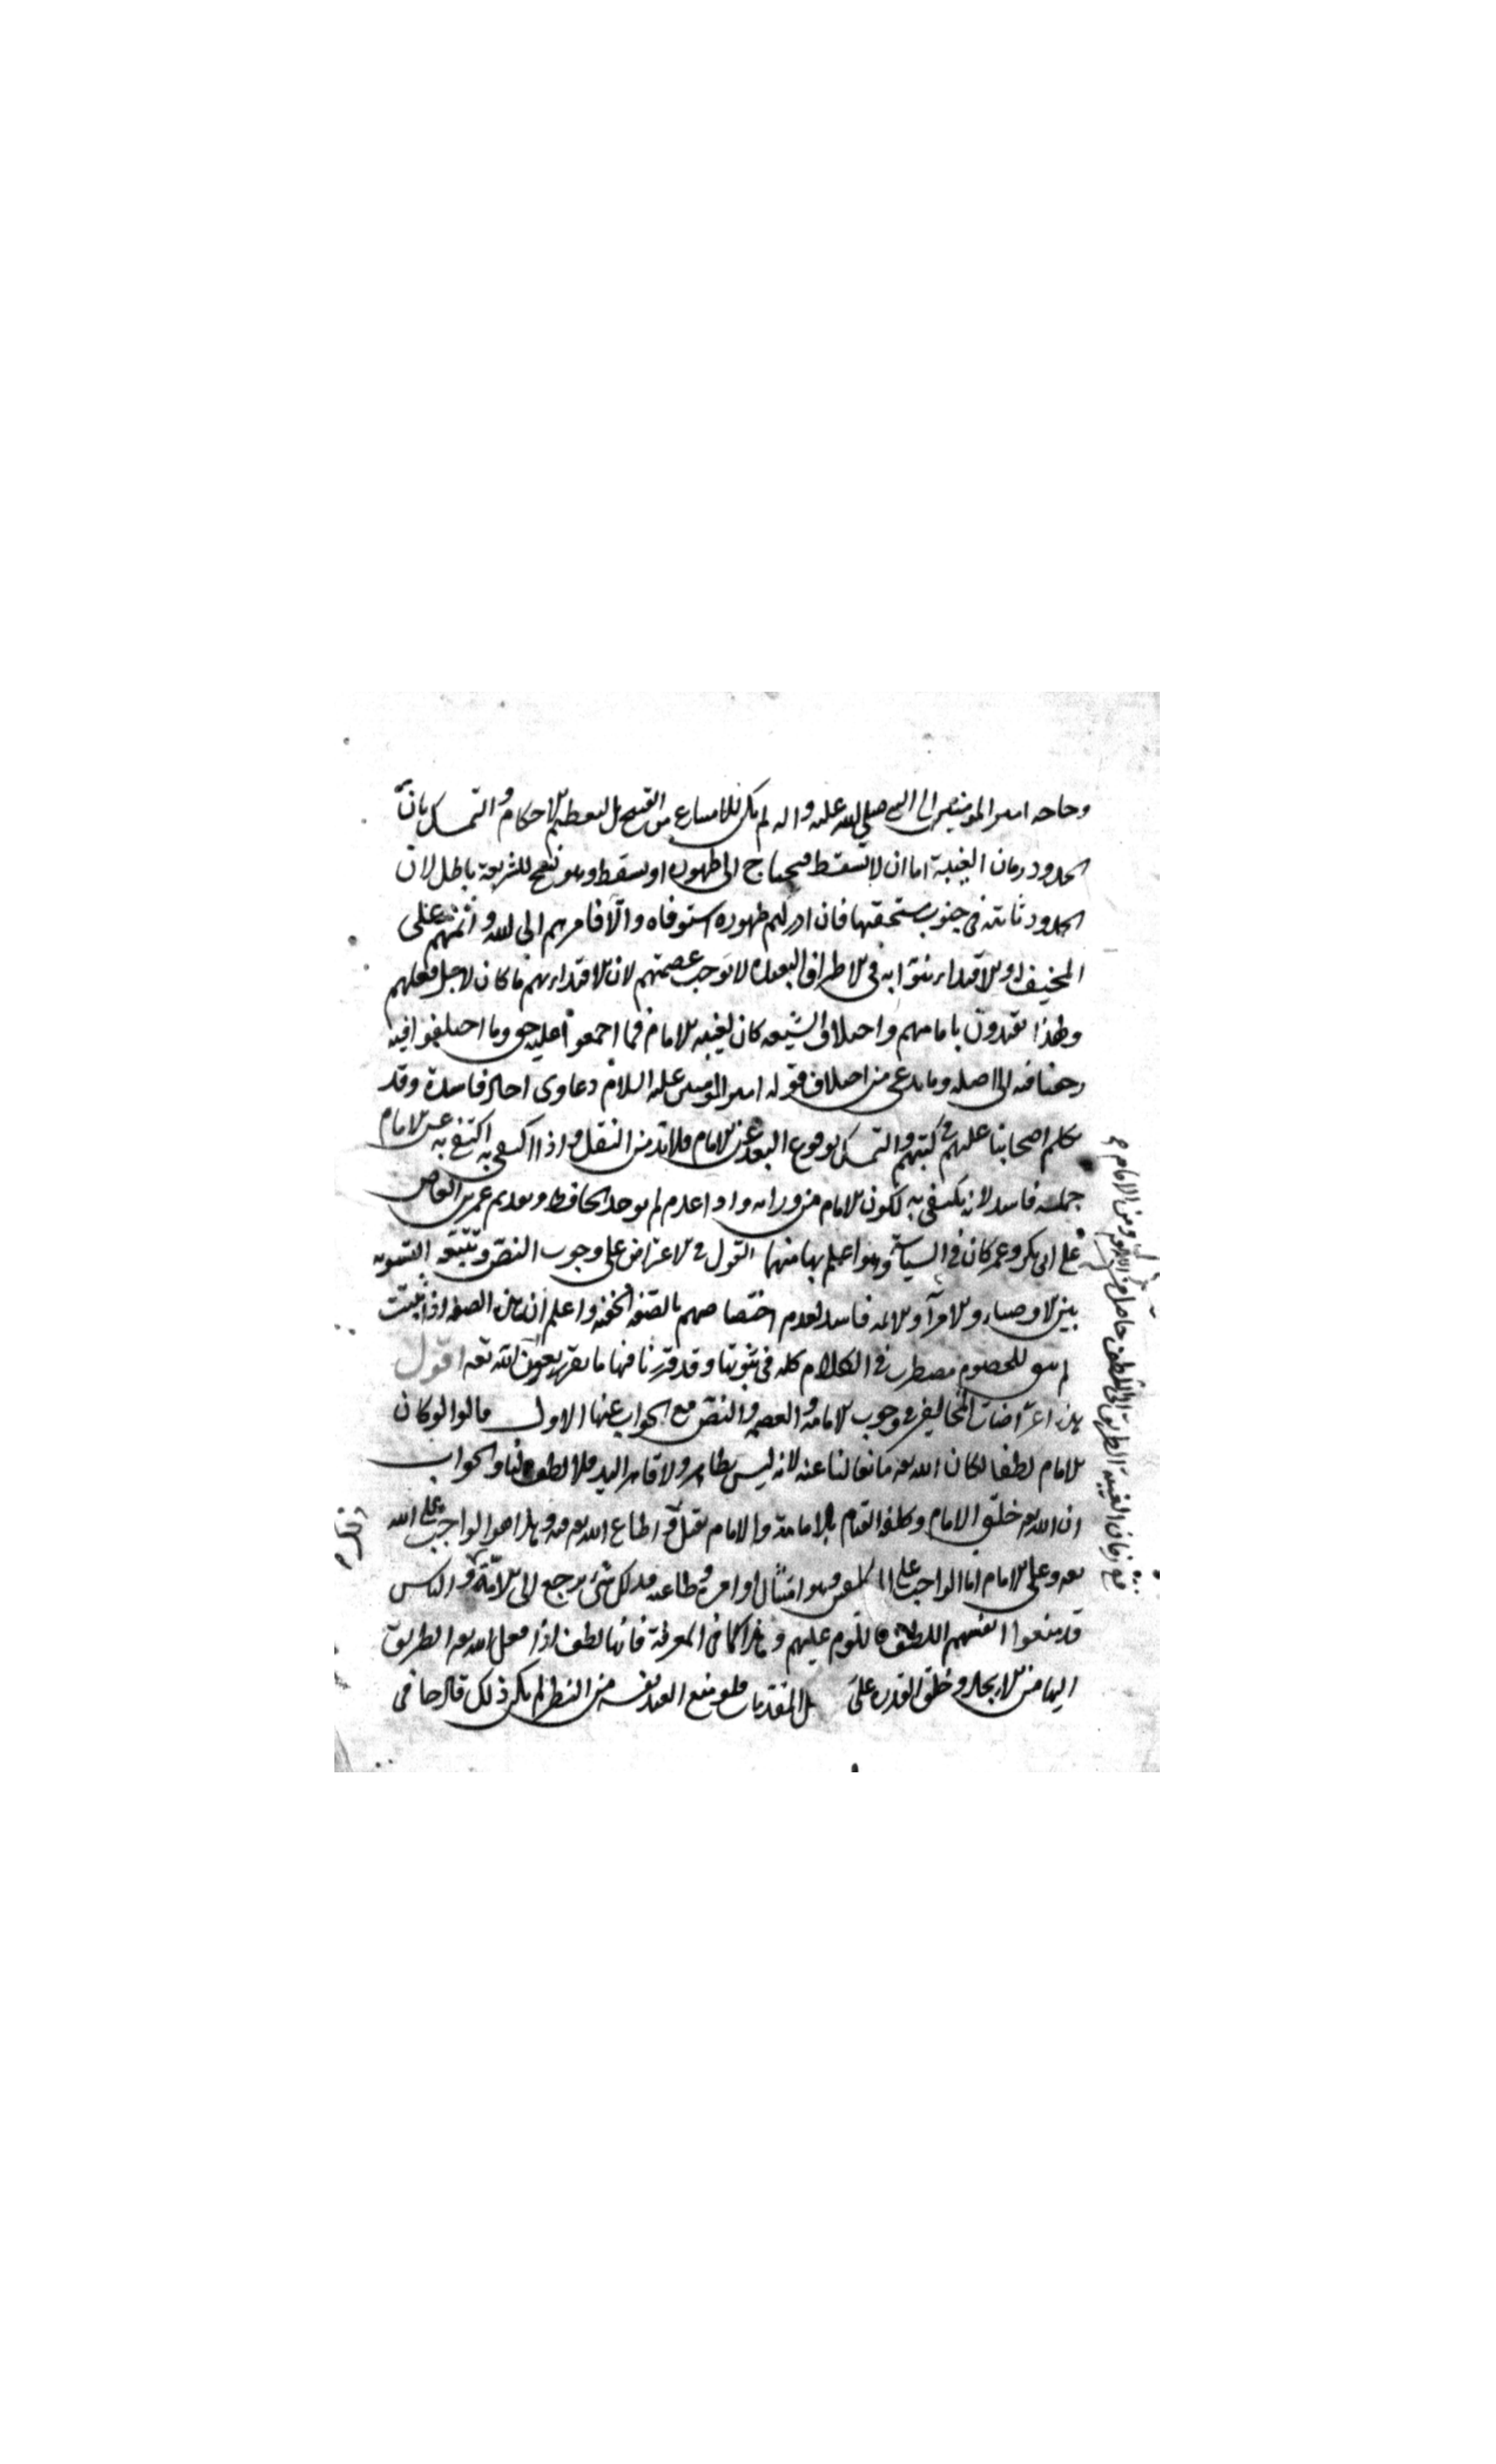 وحاجة امير المومنين الى النبى صلى الله عليه واله لم يكن للامتناع من القبيح بل لتعظيم الاحكام والتمسك بان
الحدود زمان الغيبة اما ان لا تسقط فيحتاج الى ظهوره او تسقط وهو نسخ للشريعة باطل لان
الحدود ثابتة فى جنوب مستحقها فان ادركهم ظهوره استوفاه والا فامرهم الى الله واثمهم على
المخيف له والاقتداء بنوابه فى الاطراف البعيدة لا توجب عصمتهم لان الاقتداء بهم ما كان لاجل فعلهم
ولهذا يقتدون بامامهم واختلاف الشيعة كان لغيبة الامام فما اجمعوا عليه حق وما اختلفوا فيه
رجعنا فيه الى اصله وما يدعى من اختلاف قول امير المومنين عليه السلام دعاوى احاد فاسدة وقد
تكلم اصحابنا عليهم فى كتبهم والتمسك بوقوع البعد عن الامام فلا بد من النقل واذا اكتفى به اكتفى به عن الامام
جملة فاسد لانه يكتفى به لكون الامام من ورائه واذا عدم لم يوجد الحافظ وتقديم عمرو بن العاص
على ابى بكر وعمر كان فى السياسة وهو اعلم بها منهما القول فى الاعتراض على وجوب النص التسوية
بين الاوصياء والامراء والائمة فاسد لعدم اختصاصهم بالصفة الخفية واعلم ان هذه الصفة اذا ثبتت
لم يبق للخصوم مضطرب فى الكلام كله فى ثبوتها وقد قررنا فيها ما تقر به العين ان الله تعه اقول
هذه اعتراضات المخالفين فى وجوب الامامة والعصمة والنص مع الجواب عنها الاول قالوا لو كان
الامام لطفا لكان الله تعه مانعا لنا عنه لانه ليس بظاهر ولا قاهر اليد فلا لطف لنا والجواب
ان الله تعه خلق الامام وكلفه القيام بالامامة والامام تقبل و اطاع الله تعه فيه وهذا هو الواجب على الله
تعه وعلى الامام اما الواجب على المكلفين وهو امتثال اوامره وطاعته فذلك شئ يرجع الى الامة والناس
قد منعوا انفسهم اللطف فاللوم عليهم وهذا كما فى المعرفة فانها لطف اذا فعل الله تعه الطريق
اليها من الايجاد وخلق القدرة على بل المقدمات فلو منع العبد نفسه من النظر لم يكن ذلك قادحا فى
مع زمان الغيبة الطريق الى اللطف حاصل من الله تعه ومن الامام ع
ذلك